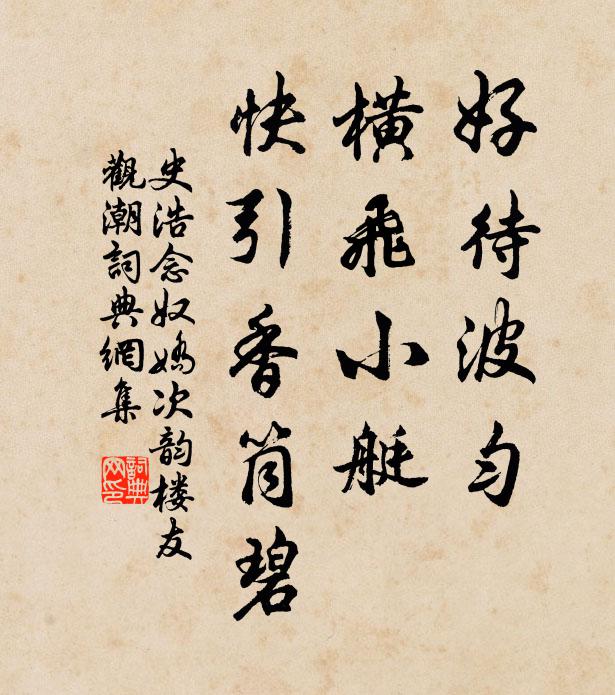 好待波勻
橫飛小艇
快引香筒碧
史浩念奴嬌次韵楼友
觀潮詞典網集
詞典网印